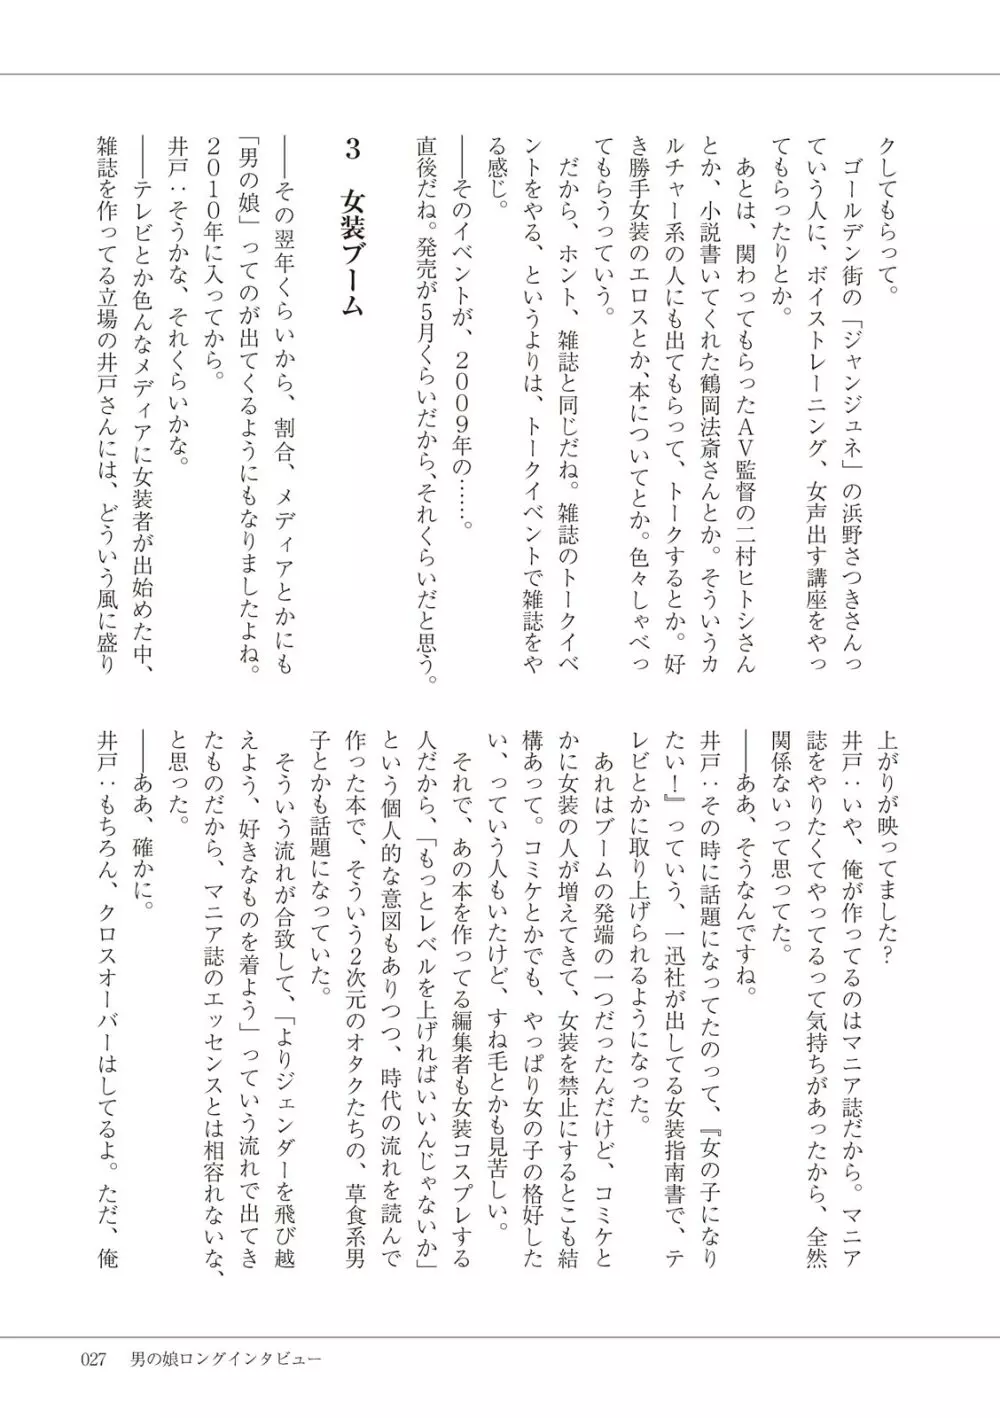 クしてもらって。
　ゴールデン街の「ジャンジュネ」の浜野さつきさんっ
ていう人に、ボイストレーニング、女声出す講座をやっ
てもらったりとか。
　あとは、関わってもらったAV監督の二村ヒトシさん
とか、小説書いてくれた鶴岡法斎さんとか。そういうカ
ルチャー系の人にも出てもらって、トークするとか。好
き勝手女装のエロスとか、本についてとか。色々しゃべっ
てもらうっていう。
　だから、ホント、雑誌と同じだね。雑誌のトークイベ
ントをやる、というよりは、トークイベントで雑誌をや
る感じ。
――そのイベントが、2009年の……。
直後だね。発売が5月くらいだから、それくらいだと思う。
3　女装ブーム
――その翌年くらいから、割合、メディアとかにも
「男の娘」ってのが出てくるようにもなりましたよね。
2010年に入ってから。
井戸：そうかな、それくらいかな。
――テレビとか色んなメディアに女装者が出始めた中、
雑誌を作ってる立場の井戸さんには、どういう風に盛り
上がりが映ってました？
井戸：いや、俺が作ってるのはマニア誌だから。マニア
誌をやりたくてやってるって気持ちがあったから、全然
関係ないって思ってた。
――ああ、そうなんですね。
井戸：その時に話題になってたのって、『女の子になり
たい！』っていう、一迅社が出してる女装指南書で、テ
レビとかに取り上げられるようになった。
　あれはブームの発端の一つだったんだけど、コミケと
かに女装の人が増えてきて、女装を禁止にするとこも結
構あって。コミケとかでも、やっぱり女の子の格好した
い、っていう人もいたけど、すね毛とかも見苦しい。
　それで、あの本を作ってる編集者も女装コスプレする
人だから、「もっとレベルを上げればいいんじゃないか」
という個人的な意図もありつつ、時代の流れを読んで
作った本で、そういう2次元のオタクたちの、草食系男
子とかも話題になっていた。
　そういう流れが合致して、「よりジェンダーを飛び越
えよう、好きなものを着よう」っていう流れで出てき
たものだから、マニア誌のエッセンスとは相容れないな、
と思った。
――ああ、確かに。
井戸：もちろん、クロスオーバーはしてるよ。ただ、俺
027　男の娘ロングインタビュー